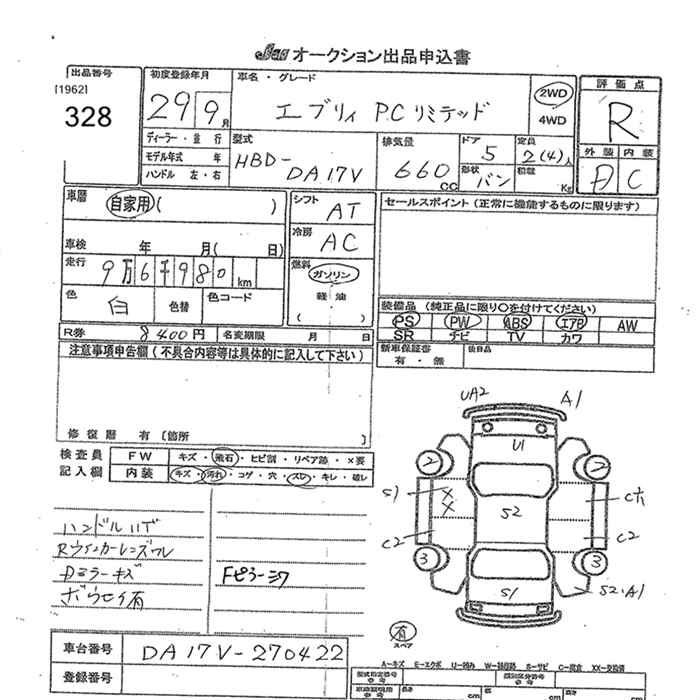 Jaa オークション出品申込書
出品番号
[1962]
328
初度登録年月
29 9月
車名・グレード
エブリィ PCリミテッド
2WD
4WD
評価点
R
外装 内装
D C
ディーラー・並行
モデル年式 年
ハンドル 左・右
型式
HBD-
DA17V
排気量
660 CC
ドア
5
形状
バン
定員
2(4)人
積載
Kg
車歴
自家用( )
車検 年 月( 日)
走行
9万6千980km
色
白
色替
色コード
シフト
AT
冷房
AC
燃料
ガソリン
軽油
( )
セールスポイント(正常に機能するものに限ります)
装備品(純正品に限り○を付けてください)
PS PW ABS エアB AW
SR ナビ TV カワ
新車保証書
有・無
後日品
R券 8400円 名変期限 月 日
注意事項申告欄(不具合内容等は具体的に記入して下さい)
修復歴 有〔箇所 〕
検査員
記入欄
FW キズ・飛石・ヒビ割・リペア跡・×要
内装 キズ・汚れ・コゲ・穴・スレ・キレ・破レ
ハンドルハゲ
Rウインカーレンズワレ
Dミラーキズ
ボウセイ有
Fピラーシワ
UA2 A1
U1
2 2
S1 X X S2 C大
C2 C2
3 3
S1 S2・A1
有
スペア
車台番号 DA17V-270422
登録番号
A-キズ E-エクボ U-凹み W-補修跡 S-サビ C-腐食 XX-交換済